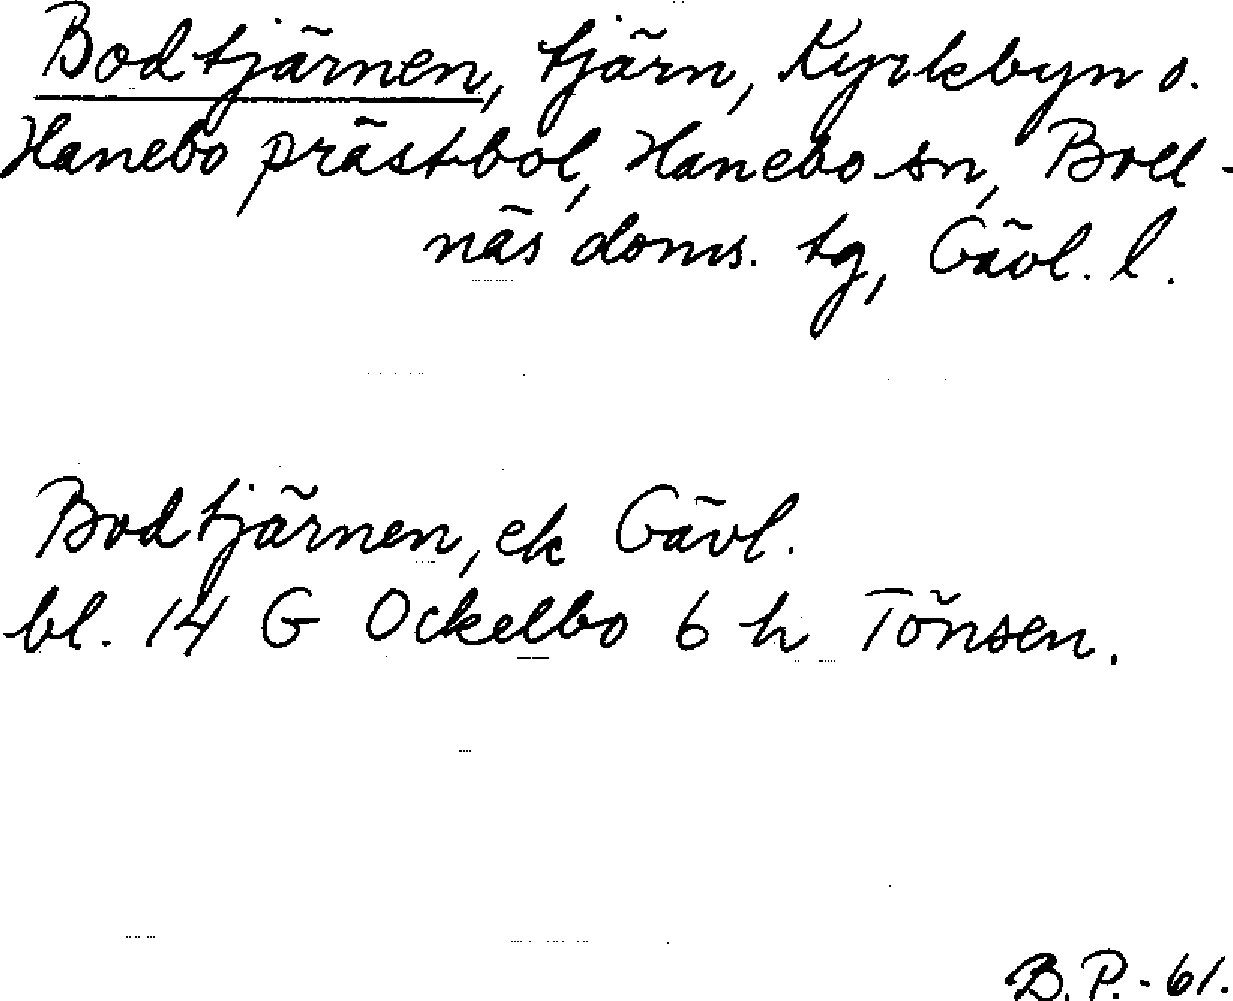 Bodtjärnen, tjärn, Kyrkbyn o.
Hanebo prästbol, Hanebo sn, Boll-
näs doms. tg, Gävl. l.
Bodtjärnen, ek Gävl.
bl. 14 G Ockelbo 6 h Tönsen.
B.P.-61.